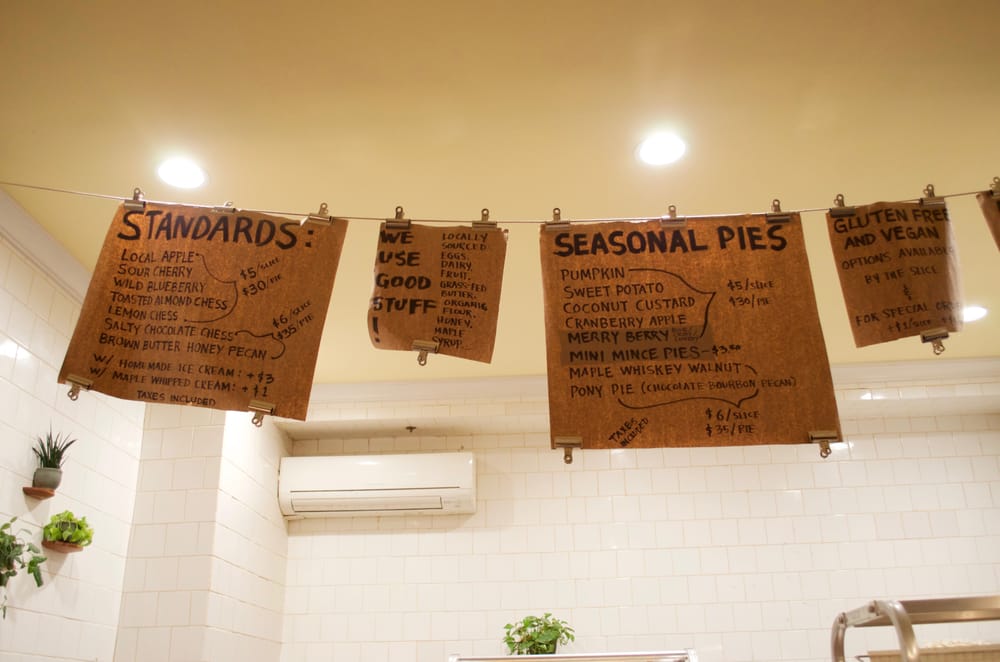 STANDARDS:
LOCAL APPLE
SOUR CHERRY
WILD BLUEBERRY
TOASTED ALMOND CHESS
LEMON CHESS
$5/SLICE
$30/PIE
SALTY CHOCOLATE CHESS
BROWN BUTTER HONEY PECAN
$6/SLICE
$35/PIE
W/ HOMEMADE ICE CREAM: +$3
W/ MAPLE WHIPPED CREAM: +$1
TAXES INCLUDED
WE
USE
GOOD
STUFF
!
LOCALLY
SOURCED
EGGS,
DAIRY,
FRUIT.
GRASS-FED
BUTTER.
ORGANIC
FLOUR.
HONEY.
MAPLE
SYRUP...
SEASONAL PIES
PUMPKIN
SWEET POTATO
COCONUT CUSTARD
CRANBERRY APPLE
MERRY BERRY
$5/SLICE
$30/PIE
MINI MINCE PIES-$3.50
MAPLE WHISKEY WALNUT
PONY PIE (CHOCOLATE BOURBON PECAN)
$6/SLICE
$35/PIE
TAXES
INCLUDED
GLUTEN FREE
AND VEGAN
OPTIONS AVAILAB
BY THE SLICE
&
FOR SPECIAL ORD
+$1/SLICE